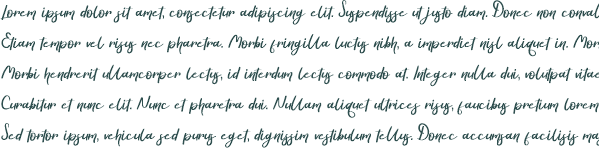 Lorem ipsum dolor sit amet, consectetur adipiscing elit. Suspendisse ut justo diam. Donec non conval
Etiam tempor vel risus nec pharetra. Morbi fringilla luctus nibh, a imperdiet nisl aliquet in. Mor
Morbi hendrerit ullamcorper lectus, id interdum lectus commodo at. Integer nulla dui, volutpat vitae
Curabitur et nunc elit. Nunc et pharetra dui. Nullam aliquet ultrices risus, faucibus pretium lorem
Sed tortor ipsum, vehicula sed purus eget, dignissim vestibulum tellus. Donec accumsan facilisis ma